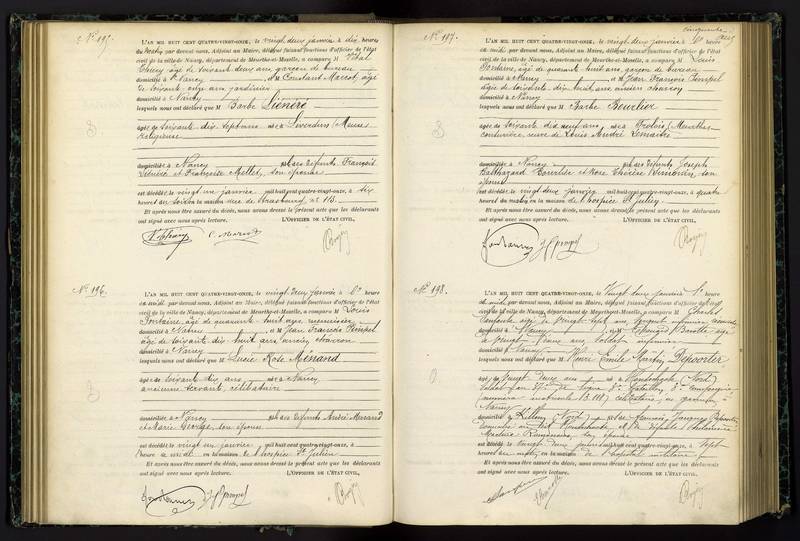 N° 195.
L'AN MIL HUIT CENT QUATRE-VINGT-ONZE, le vingt deux janvier à dix heures
du matin par devant nous, Adjoint au Maire, délégué faisant fonctions d'officier de l'état
civil de la ville de Nancy, département de Meurthe-et-Moselle, a comparu M Vital
Fleury âgé de soixante deux ans, garçon de bureau
domicilié à Nancy et M Constant Marcot, âgé
de soixante onze ans, jardinier
domicilié à Nancy
lesquels nous ont déclaré que M Barbe Liénéré
âgée de soixante dix sept ans née à Liverdun (Meuse
religieuse
domiciliée à Nancy et des défunts François
Liénéré et Françoise Mellet, son épouse
est décédée le vingt un janvier mil huit cent quatre-vingt-onze, à six
heures du soir en la maison rue de Strasbourg, n° 113.
Et après nous être assuré du décès, nous avons dressé le présent acte que les déclarants
ont signé avec nous après lecture. L'OFFICIER DE L'ÉTAT CIVIL,
V. Fleury C. Marcot
N° 196.
L'AN MIL HUIT CENT QUATRE-VINGT-ONZE, le vingt deux janvier à 1 heure
du midi par devant nous, Adjoint au Maire, délégué faisant fonctions d'officier de l'état
civil de la ville de Nancy, département de Meurthe-et-Moselle, a comparu M Louis
Fontaine, âgé de quarante huit ans, menuisier
domicilié à Nancy et M Jean François Pimpel
âgé de soixante dix huit ans, ancien charron
domicilié à Nancy
lesquels nous ont déclaré que M Lucie Rose Ménand
âgée de soixante dix ans née à Nancy
ancienne servante, célibataire
domiciliée à Nancy et des défunts André Menand
et Marie George, son épouse
est décédée le vingt un janvier mil huit cent quatre-vingt-onze, à
heure en la maison de l'hospice St Julien
Et après nous être assuré du décès, nous avons dressé le présent acte que les déclarants
ont signé avec nous après lecture. L'OFFICIER DE L'ÉTAT CIVIL,
cinquante
N° 197.
L'AN MIL HUIT CENT QUATRE-VINGT-ONZE, le vingt deux janvier à 1 heure
du midi par devant nous, Adjoint au Maire, délégué faisant fonctions d'officier de l'état
civil de la ville de Nancy, département de Meurthe-et-Moselle, a comparu M Louis
Fontaine, âgé de quarante huit ans, garçon de bureau
domicilié à Nancy et M Jean François Pimpel
âgé de soixante dix huit ans, ancien charron
domicilié à Nancy
lesquels nous ont déclaré que M Barbe
âgée de soixante dix neuf ans née à Frolois (Meurthe
couturière, veuve de Louis André Lemaitre
domiciliée à Nancy et des défunts Joseph
Balthazard et Rose Thérèse son
épouse
est décédée le vingt deux janvier mil huit cent quatre-vingt-onze, à quatre
heures du matin en la maison de l'hospice St Julien
Et après nous être assuré du décès, nous avons dressé le présent acte que les déclarants
ont signé avec nous après lecture. L'OFFICIER DE L'ÉTAT CIVIL,
N° 198.
L'AN MIL HUIT CENT QUATRE-VINGT-ONZE, le Vingt deux janvier à 1 heure
du midi par devant nous, Adjoint au Maire, délégué faisant fonctions d'officier de l'état
civil de la ville de Nancy, département de Meurthe-et-Moselle, a comparu M Charles
âgé de vingt sept ans, sergent infirmier
domicilié à Nancy et M âgé
de vingt ans, soldat infirmier
domicilié à Nancy
lesquels nous ont déclaré que M Henri Emile
âgé de vingt deux ans né à Hondschoote (Nord)
soldat au de ligne Bataillon compagnie
(numéro matricule célibataire, en garnison à
Nancy
domicilié à Killem (Nord)
est décédé le vingt deux janvier mil huit cent quatre-vingt-onze, à sept
heures du matin en la maison de l'hôpital militaire
Et après nous être assuré du décès, nous avons dressé le présent acte que les déclarants
ont signé avec nous après lecture. L'OFFICIER DE L'ÉTAT CIVIL,